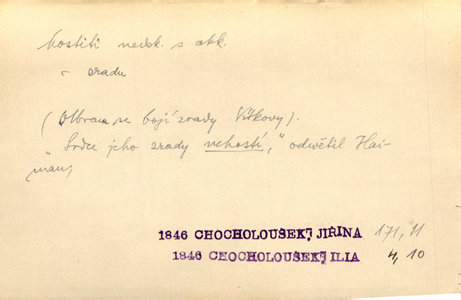 hostiti nedok. s akk.
~ zradu
(Olbram se bojí zrady Vítkovy).
"Srdce jeho zrady nehostí," odwětil Hai-
man;
1846 CHOCHOLOUŠEK, JIŘINA 171, 11
1846 CHOCHOLOUŠEK, ILIA 4, 10